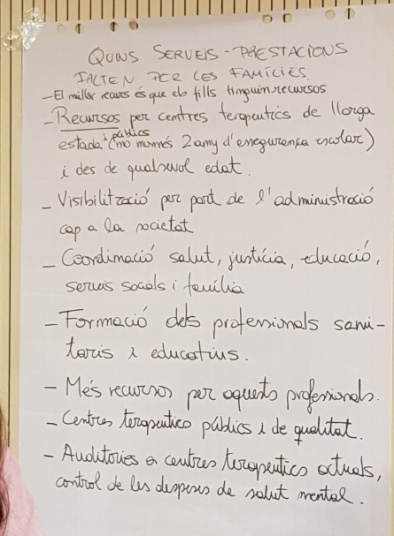 QUINS SERVEIS - PRESTACIONS
FALTEN PER LES FAMÍLIES
- El millor recurs és que els fills tinguin recursos
- Recursos per centres terapeutics de llarga
estada i públics (no només 2 any d'assegurança escolar)
i des de qualsevol edat.
- Visibilització per part de l'administració
cap a la societat
- Coordinació salut, justícia, educació,
serveis socials i família
- Formació dels professionals sani-
taris i educatius.
- Més recursos per aquests professionals.
- Centres terapeutics públics i de qualitat.
- Auditories a centres terapeutics actuals,
control de les despeses de salut mental.